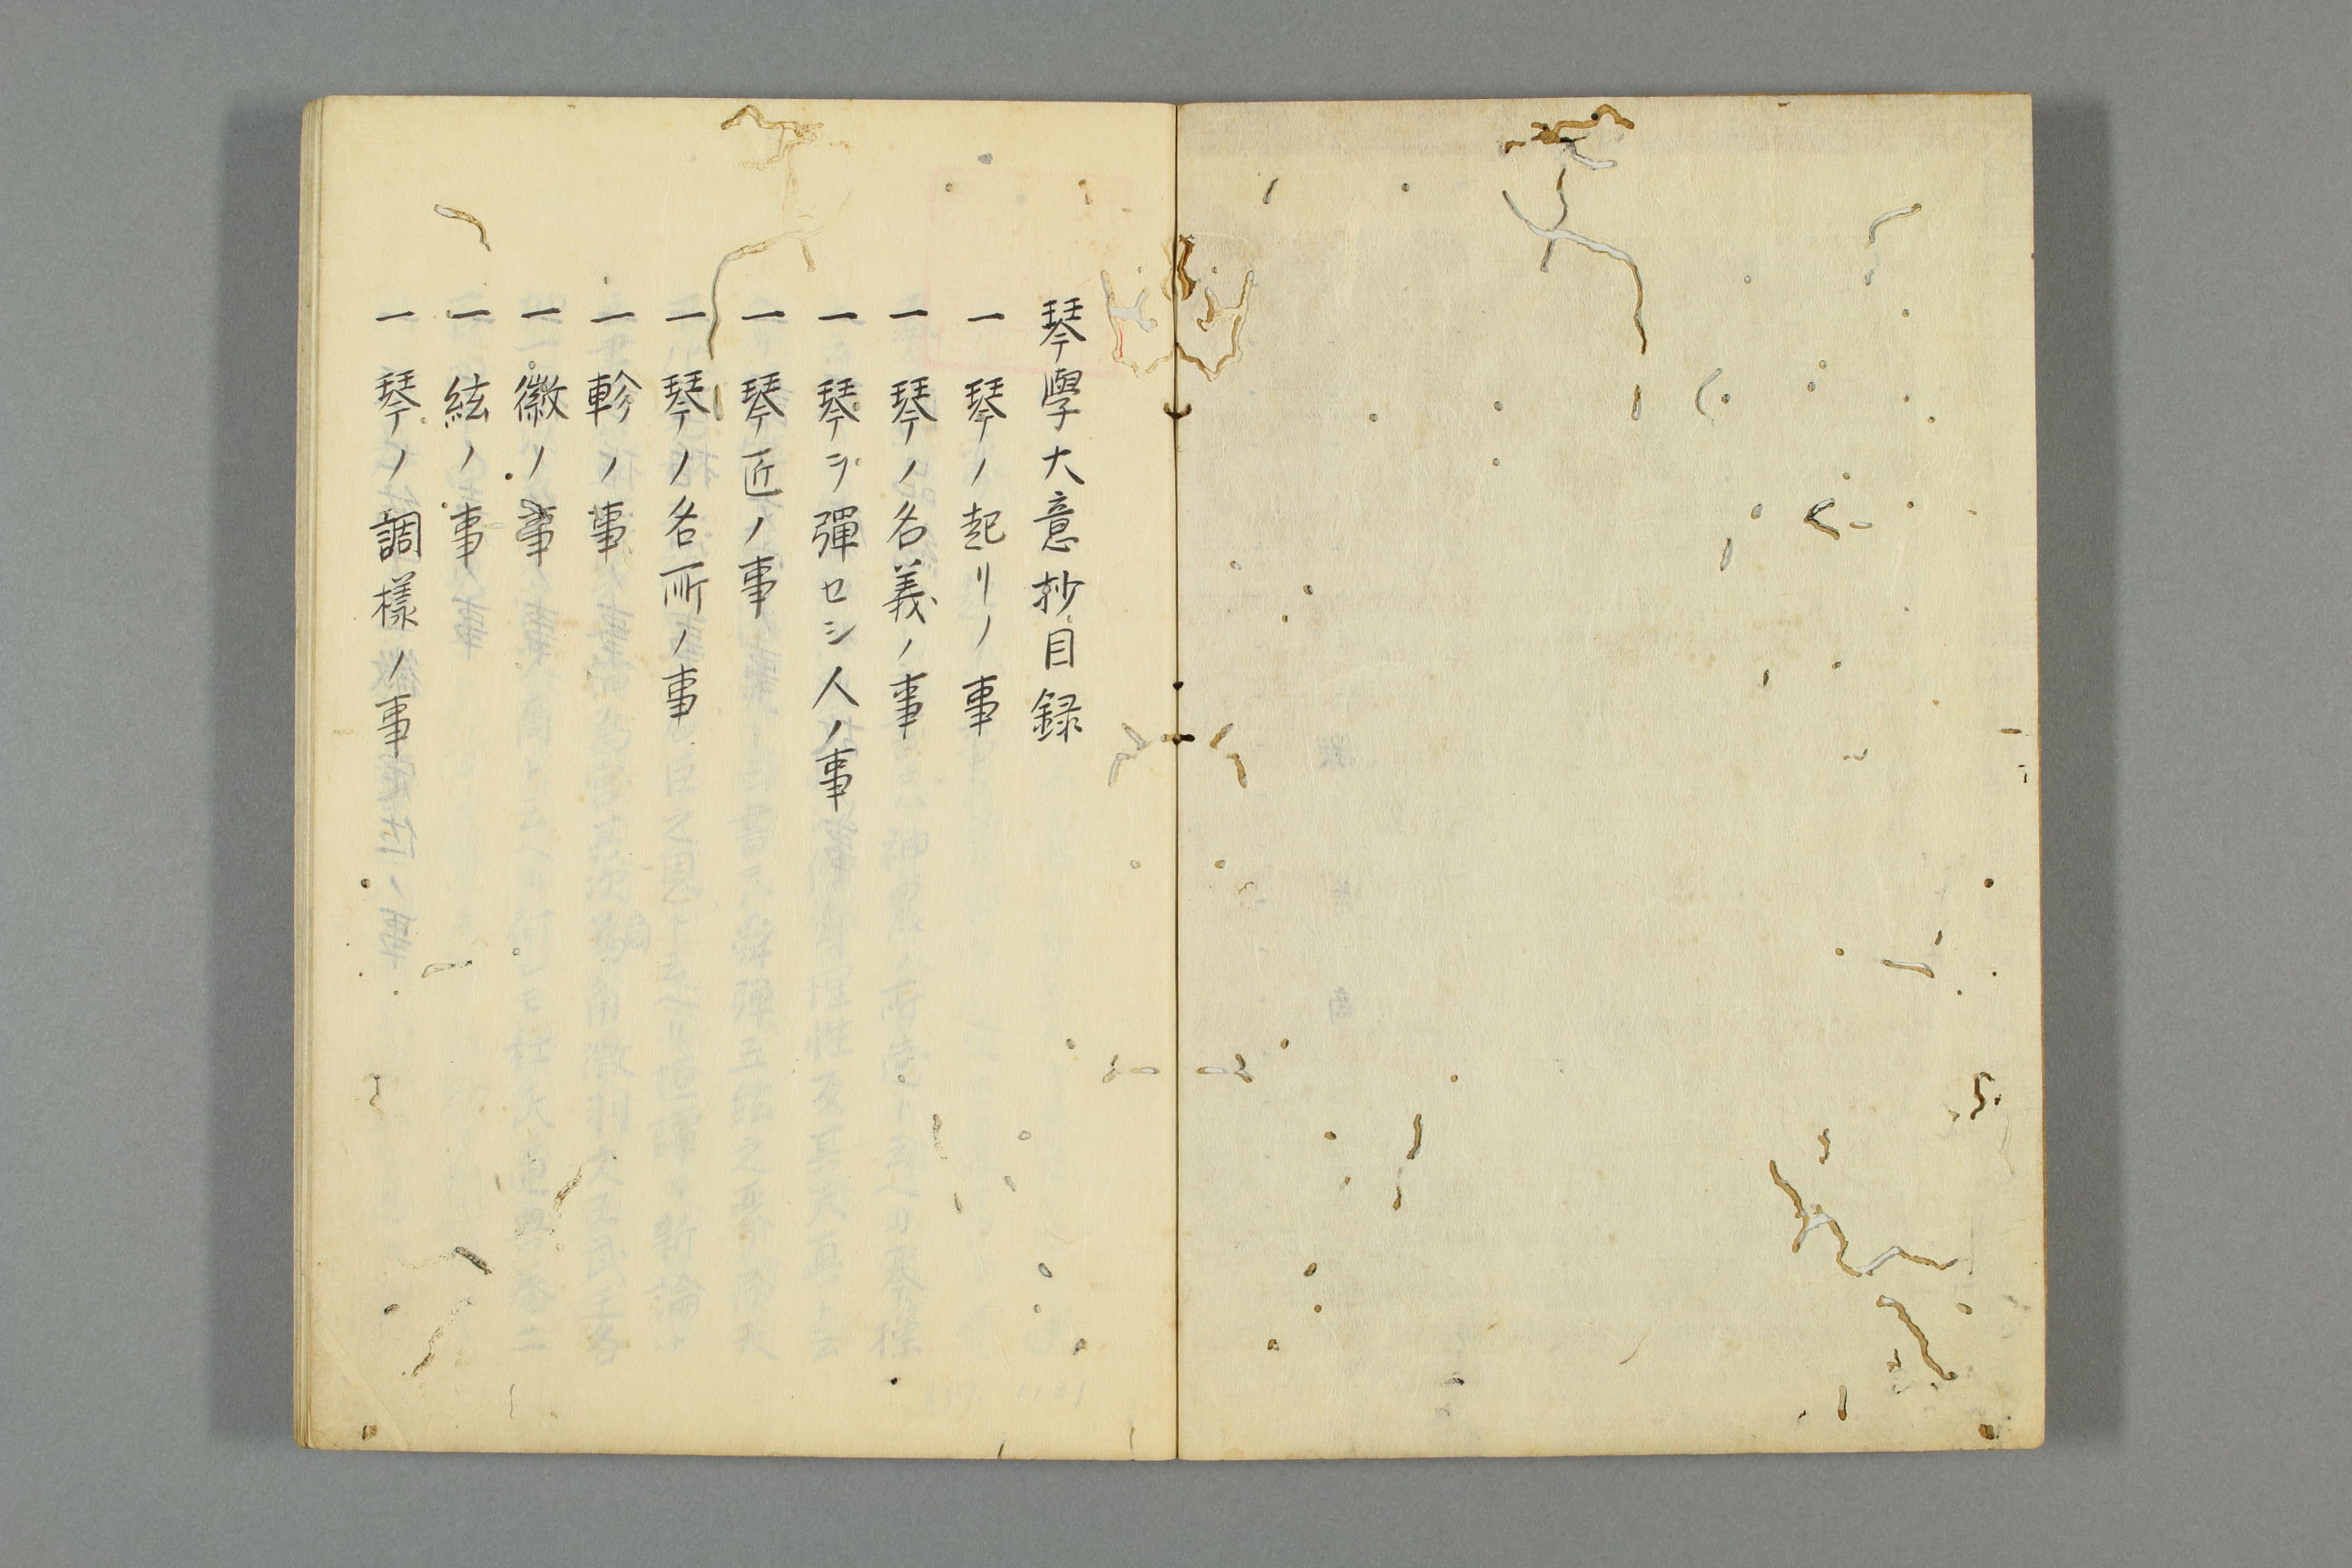 琴學大意抄目録
一 琴ノ起リノ事
一 琴ノ名義ノ事
一 琴ヲ彈セシ人ノ事
一 琴匠ノ事
一 琴ノ名所ノ事
一 軫ノ事
一 徽ノ事
一 絃ノ事
一 琴ノ調樣ノ事